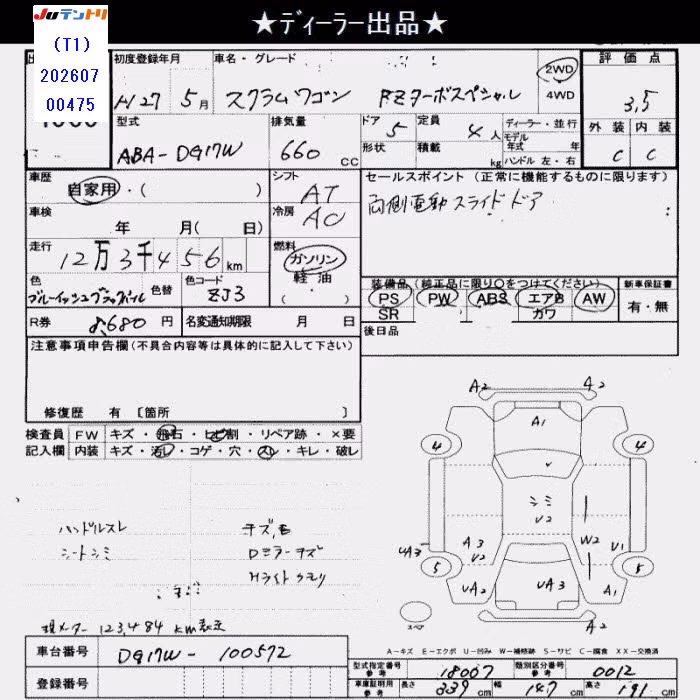 ★ディーラー出品★
JUテントリ
(T1)
202607
00475
初度登録年月 車名・グレード 2WD 評価点
H27 5月 スクラムワゴン PZターボスペシャル 4WD 3,5
型式 排気量 ドア 定員 ディーラー・並行 外装 内装
ABA-DG17W 660CC 5 4人 モデル年式 年
形状 積載 kg ハンドル 左・右 C C
車歴 シフト セールスポイント(正常に機能するものに限ります)
自家用・( ) AT 両側電動スライドドア
車検 冷房
年 月( 日) AC
走行 燃料
12万3千456km ガソリン
色 色替 色コード 軽油 装備品(純正品に限り○をつけてください) 新車保証書
ZJ3 ( ) PS PW ABS エアB AW 有・無
SR カワ
R券 8,680円 名変通知期限 月 日 後日品
注意事項申告欄(不具合内容等は具体的に記入して下さい)
修復歴 有 [箇所 ]
検査員 FW キズ・飛石・ヒビ割・リペア跡・×要
記入欄 内装 キズ・汚レ・コゲ・穴・スレ・キレ・破レ
A2 A2
A1
4 4
シミ
U2
A3 U2 W2 U1
UA3
5 5
UA2 UA3 A1
A2
スペア
ハンドルスレ キズ,E
シートシミ Dミラーキズ
Hライトクモリ
現メーター 123,484km表示
A-キズ E-エクボ U-凹み W-補修跡 S-サビ C-腐食 XX-交換済
車台番号 DG17W-100572
型式指定番号 参考 18007 類別区分番号 参考 0012
登録番号
車庫証明用 参考 長さ 339cm 幅 147cm 高さ 191cm